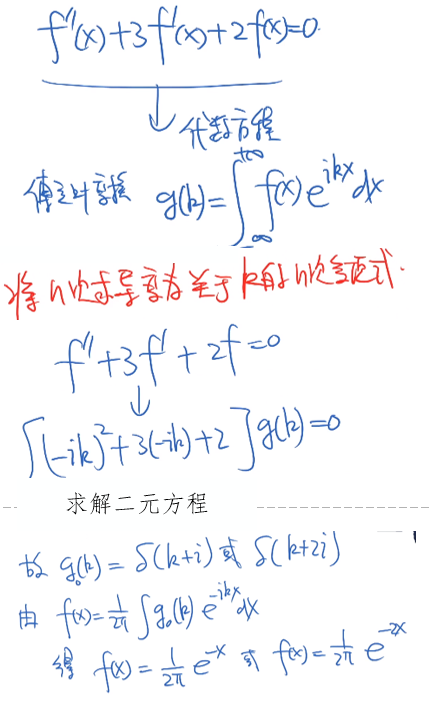 f''(x)+3f'(x)+2f(x)=0.
代数方程
傅立叶变换 g(k)=∫_{-∞}^{+∞} f(x) e^{ikx} dx
将n次求导变为关于k的n次多项式.
f''+3f'+2f=0
[(-ik)^2+3(-ik)+2]g(k)=0
求解二元方程
故 g_0(k)=δ(k+i) 或 δ(k+2i)
由 f(x)=\frac{1}{2π}∫g_0(k) e^{-ikx} dx
得 f(x)=\frac{1}{2π} e^{-x} 或 f(x)=\frac{1}{2π} e^{-2x}